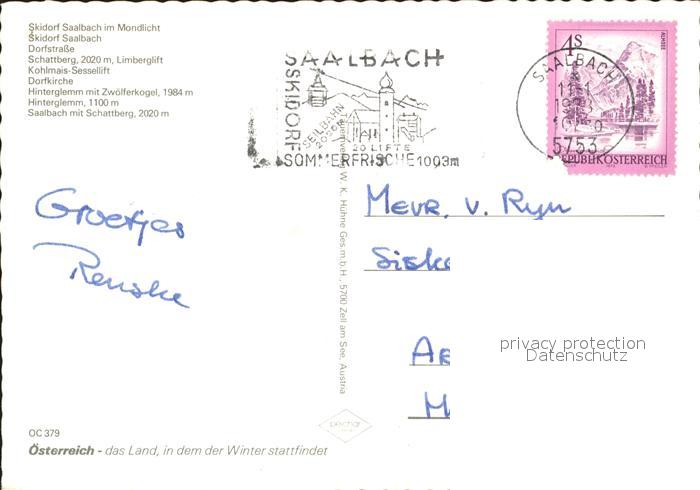 Skidorf Saalbach im Mondlicht
Skidorf Saalbach
Dorfstraße
Schattberg, 2020 m, Limberglift
Kohlmais-Sessellift
Dorfkirche
Hinterglemm mit Zwölferkogel, 1984 m
Hinterglemm, 1100 m
Saalbach mit Schattberg, 2020 m
SAALBACH
SKIDORF
SEILBAHN
20 LIFTE
SOMMERFRISCHE 1003m
4s
ALMSEE
SAALBACH
5753
REPUBLIK ÖSTERREICH
Groetjes
Renske
W. K. Hühne Ges.m.b.H., 5700 Zell am See, Austria
Mevr. v. Ryn
privacy protection
Datenschutz
OC 379
Österreich - das Land, in dem der Winter stattfindet